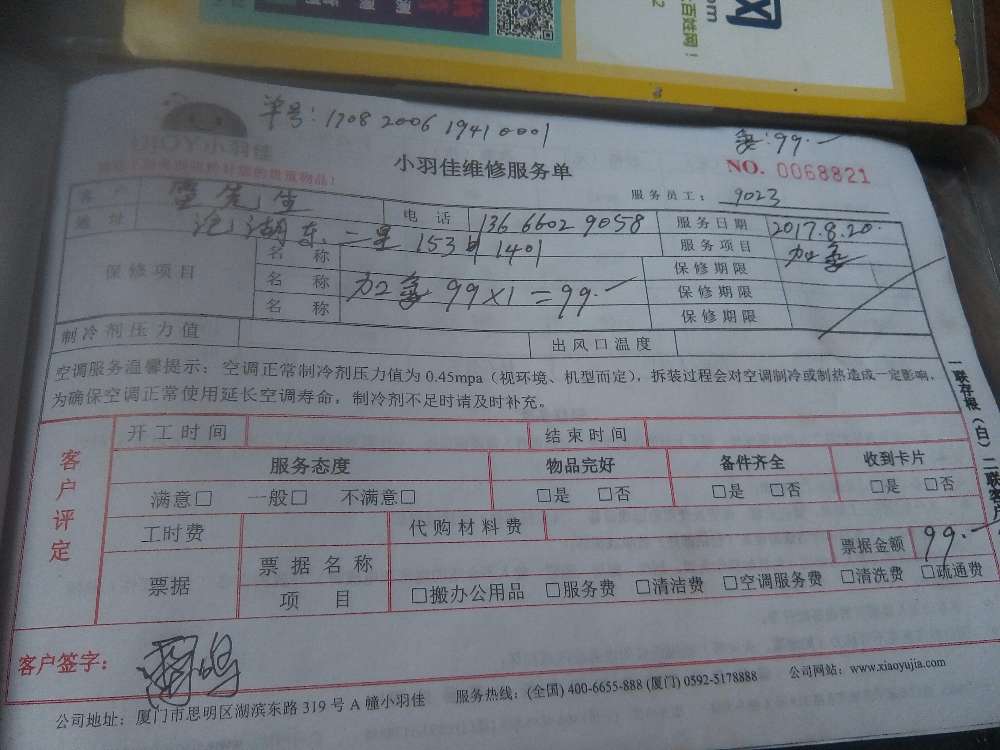 com
网
百姓网！
单号：1708 2006 1941 0001
99.-
UJOY小羽佳
小羽佳维修服务单
NO. 0068821
服务员工：9023
客 户 雷先生 电 话 136 6602 9058 服务日期 2017.8.20.
地 址 湖东 二里 153 1401 服务项目 加氟
保修项目 名 称 保修期限
名 称 加氟 99×1=99.- 保修期限
名 称 保修期限
制冷剂压力值 出风口温度
空调服务温馨提示：空调正常制冷剂压力值为 0.45mpa（视环境、机型而定），拆装过程会对空调制冷或制热造成一定影响，
为确保空调正常使用延长空调寿命，制冷剂不足时请及时补充。
一联存根（白）二联客户
客户评定
开工时间 结束时间
服务态度 物品完好 备件齐全 收到卡片
满意□ 一般□ 不满意□ □是 □否 □是 □否 □是 □否
工时费 代购材料费
票据 票据名称 票据金额 99.-
项 目 □搬办公用品 □服务费 □清洁费 □空调服务费 □清洗费 □疏通费
客户签字：
公司地址：厦门市思明区湖滨东路 319 号 A 幢小羽佳 服务热线：(全国) 400-6655-888 (厦门) 0592-5178888 公司网站：www.xiaoyujia.com